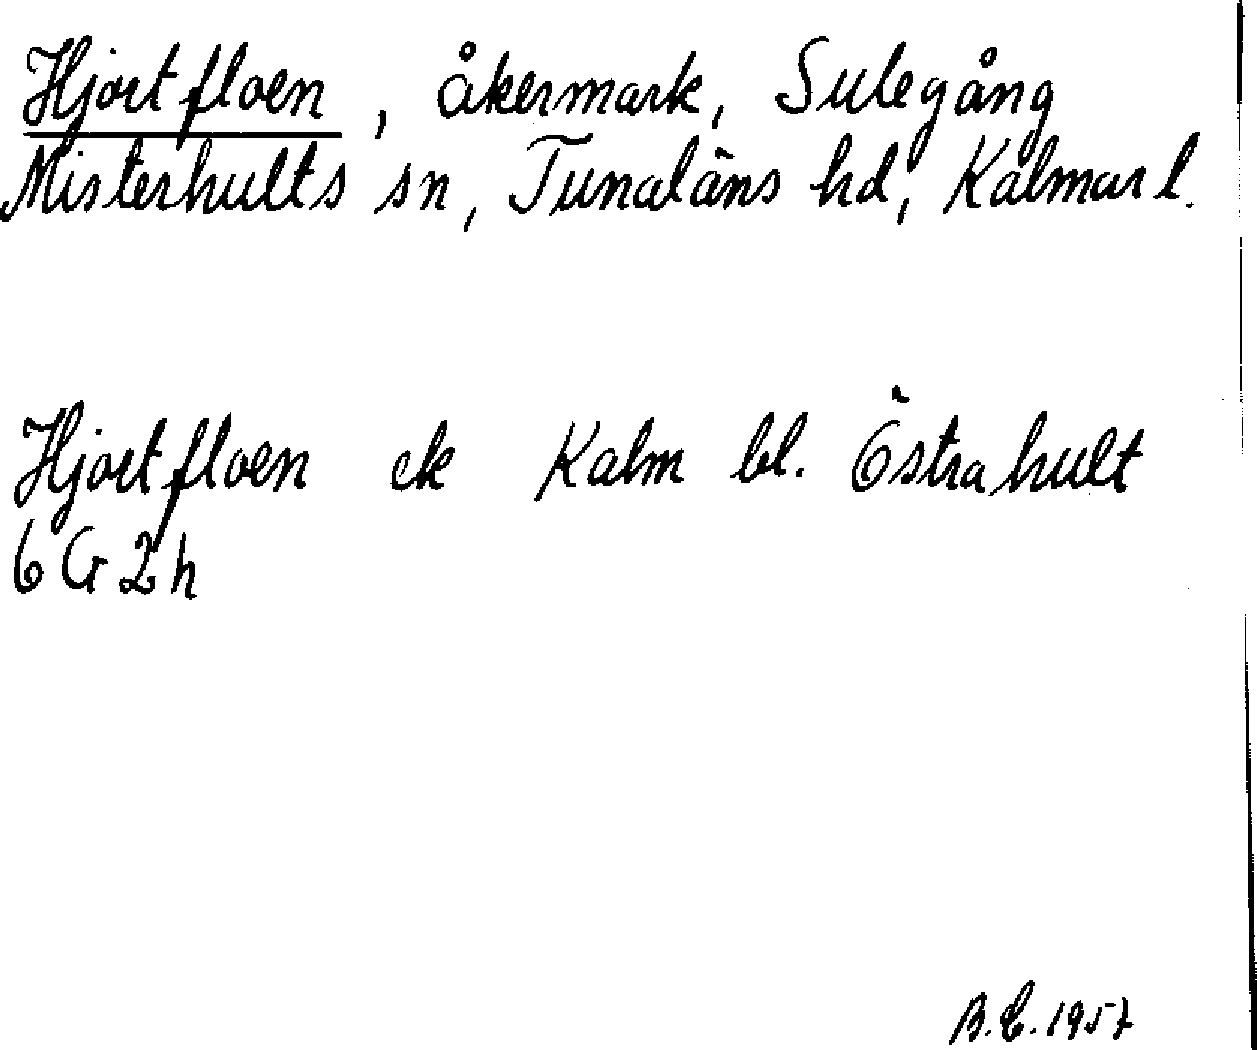 Hjortfloen, åkermark, Sulegång
Misterhults sn, Tunaläns hd, Kalmar l.
Hjortfloen ek Kalm bl. Östrahult
6 G 2h
B.E. 1957